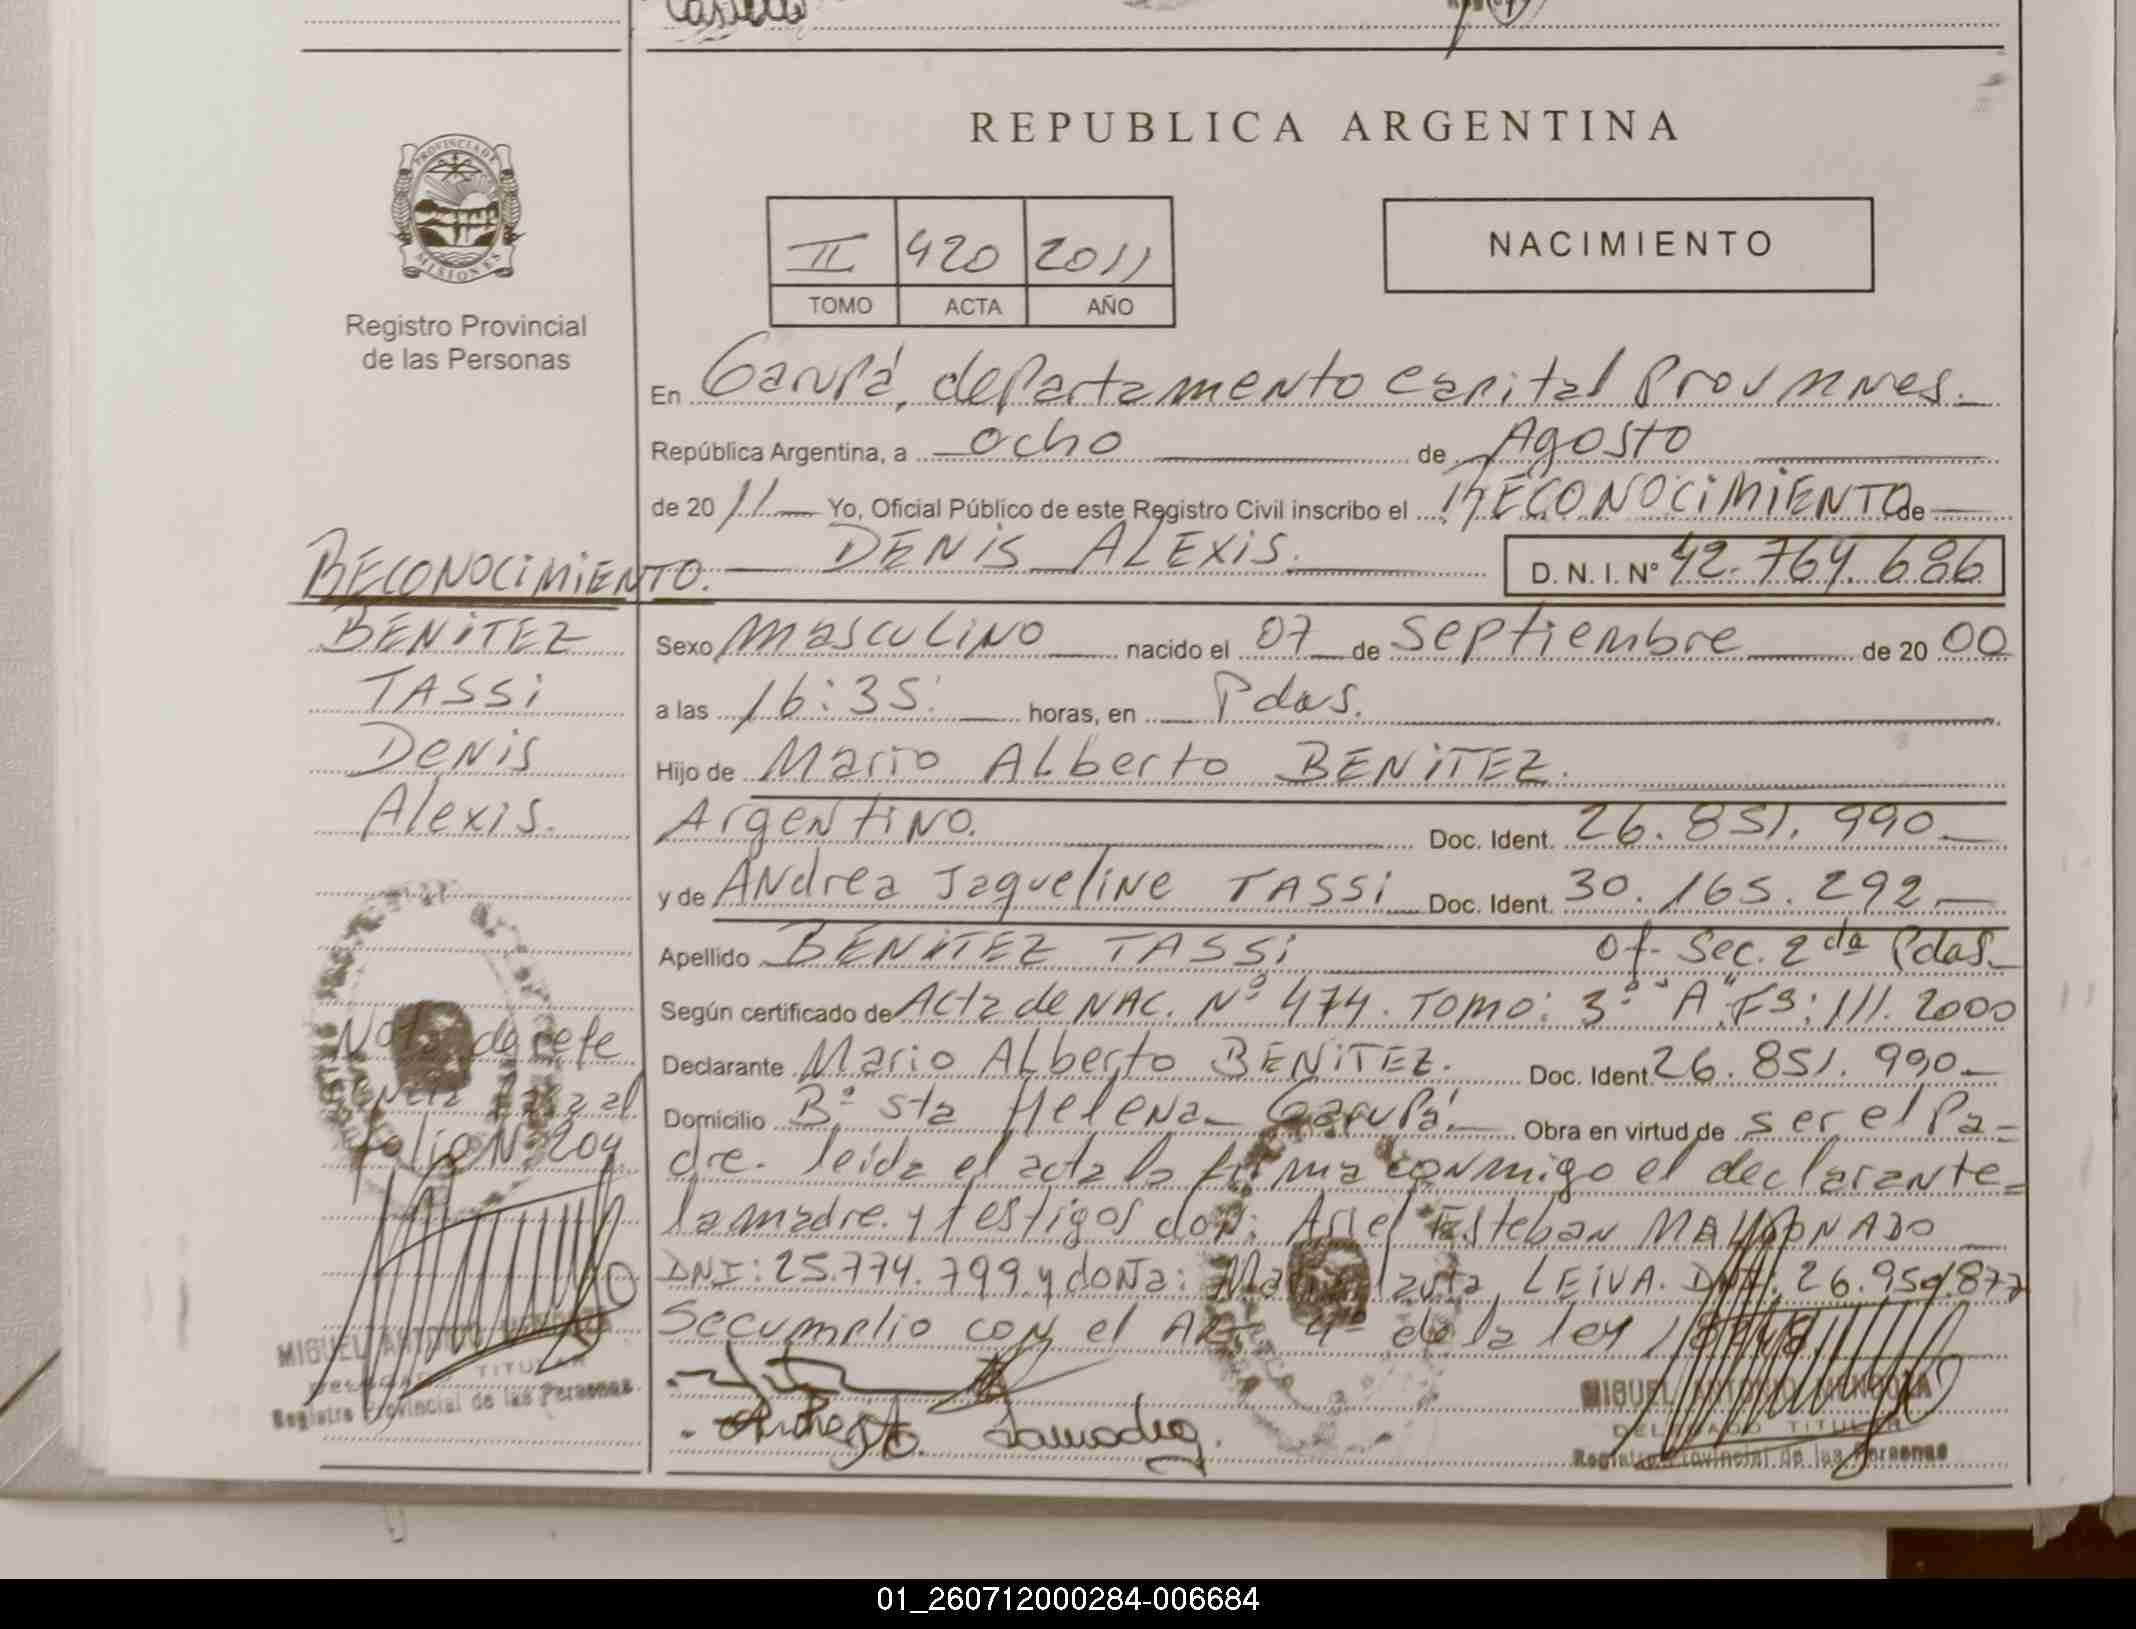 REPUBLICA ARGENTINA
PROVINCIA DE MISIONES
Registro Provincial
de las Personas
II 420 2011
TOMO ACTA AÑO
NACIMIENTO
En Garupá, departamento Capital Prov Mnes.
República Argentina, a ocho de Agosto
de 2011 Yo, Oficial Público de este Registro Civil inscribo el RECONOCIMIENTO de
DENIS ALEXIS. D. N. I. N° 42.764.686
RECONOCIMIENTO.
BENITEZ
TASSi
Denis
Alexis.
Sexo masculino nacido el 07 de Septiembre de 2000
a las 16:35 horas, en Pdas.
Hijo de Mario Alberto BENITEZ.
Argentino. Doc. Ident. 26.851.990
y de Andrea Jaqueline TASSi Doc. Ident. 30.165.292
Apellido BENITEZ TASSi Of. Sec. 2da Pdas.
Según certificado de Acta de NAC. Nº 474. Tomo: 3º "A" Fs: 111. 2000
Declarante Mario Alberto BENITEZ. Doc. Ident. 26.851.990
Domicilio Bº Sta Helena Garupá. Obra en virtud de ser el Pa-
dre. leida el acta la firma conmigo el declarante
la madre y testigos don: Ariel Esteban MALDONADO
DNI: 25.774.799 y doña: LEIVA. DNI: 26.959.877
Se cumplio con el Art. 4º de la ley
Nota de refe
rencia pasa al
folio Nº 204
MIGUEL ANTONIO MENDOZA
DELEGADO TITULAR
Registro Provincial de las Personas
MIGUEL ANTONIO MENDOZA
DELEGADO TITULAR
Registro Provincial de las Personas
01_260712000284-006684